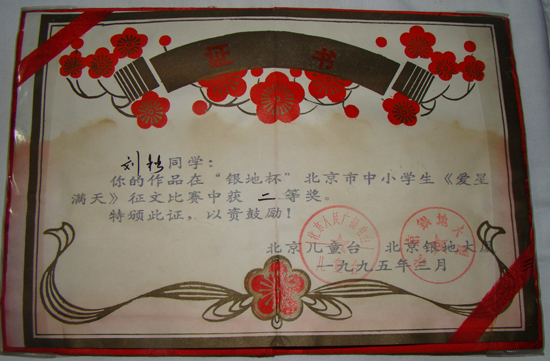 证书
刘 同学:
你的作品在“银地杯”北京市中小学生《爱星
满天》征文比赛中获 二 等奖。
特颁此证,以资鼓励!
北京儿童台 北京银地大厦
一九九五年三月